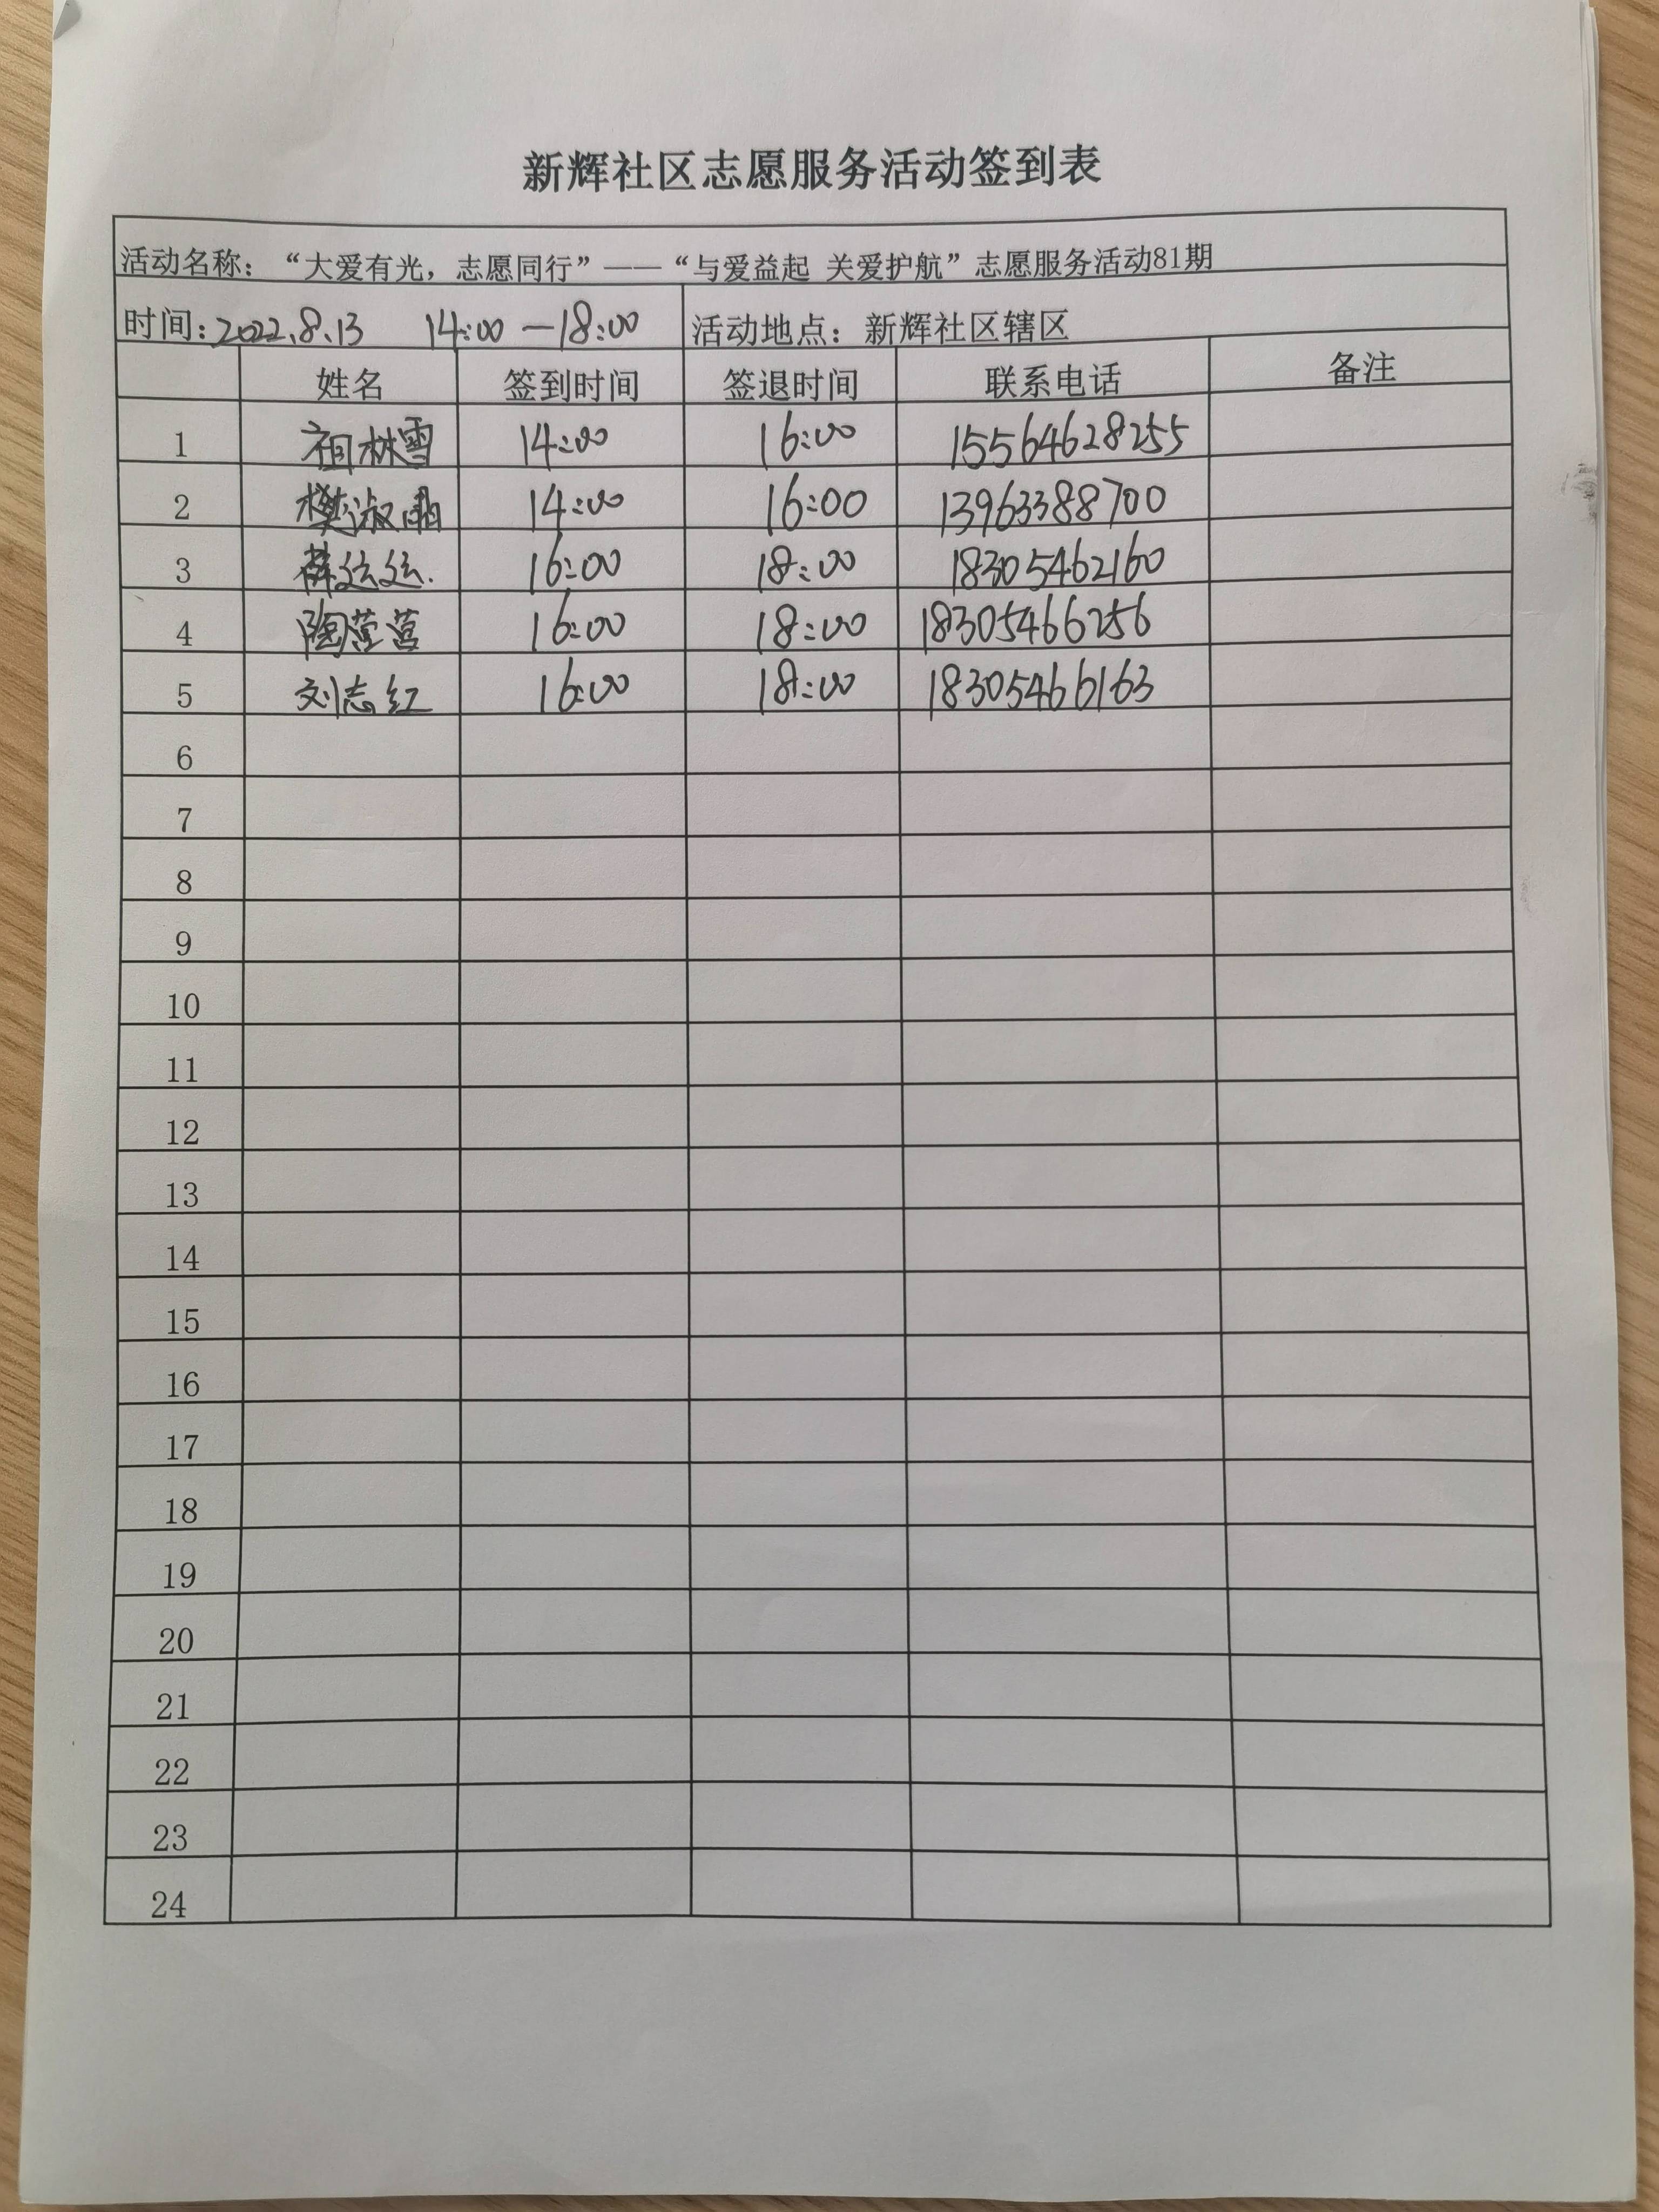 新辉社区志愿服务活动签到表
活动名称：“大爱有光，志愿同行”——“与爱益起 关爱护航”志愿服务活动81期
时间：2022.8.13 14:00—18:00 活动地点：新辉社区辖区
姓名 签到时间 签退时间 联系电话 备注
1 祖林雪 14:00 16:00 15564628255
2 樊淑 14:00 16:00 13963388700
3 薛 16:00 18:00 18305462160
4 陶莹莹 16:00 18:00 18305466256
5 刘志红 16:00 18:00 18305466163
6
7
8
9
10
11
12
13
14
15
16
17
18
19
20
21
22
23
24